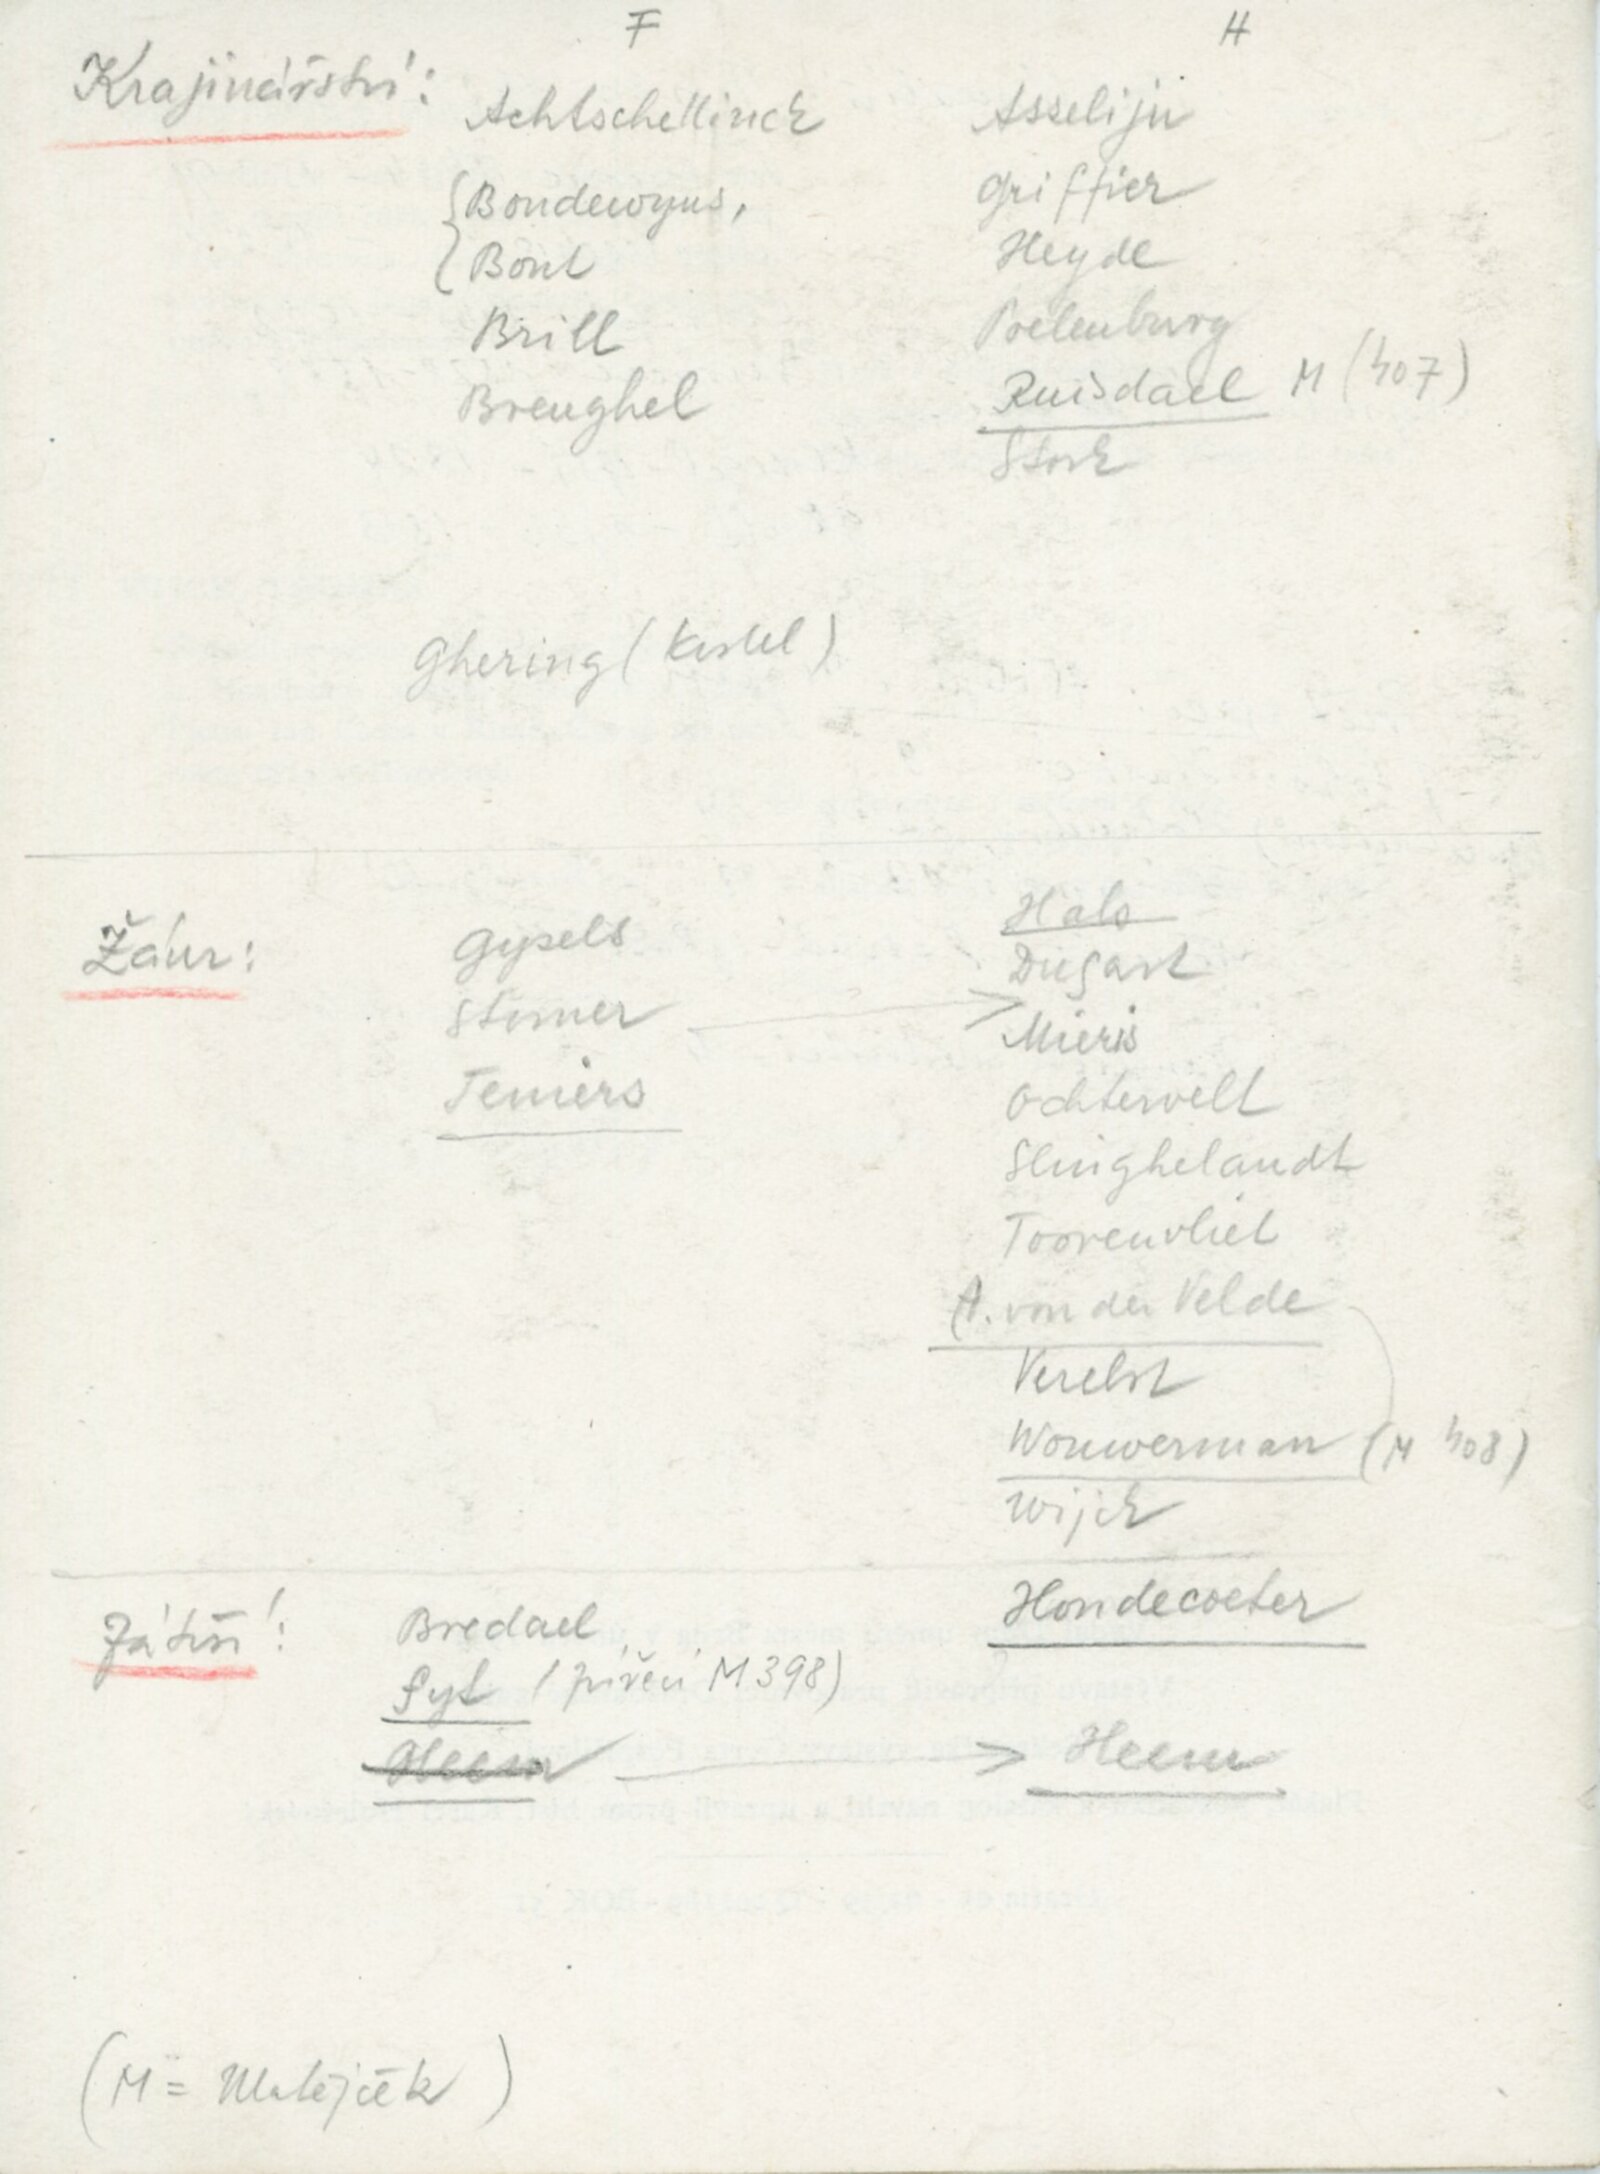 F H
Krajinářství: Achtschellinck Asselijn
Boudewyns, Griffier
Bout Heyde
Brill Poelenburg
Breughel Ruisdael M (407)
Stork
Ghering (kostel)
Hals
Žánr: Gysels Dusart
Stomer Mieris
Teniers Ochtervelt
Slinghelandt
Toorenvliet
A. von der Velde
Verelst
Wouwerman (M 408)
Wijck
Zátiší: Bredael Hondecoeter
Fyt (zvířecí M 398)
Heem Heem
(M = Matějček)